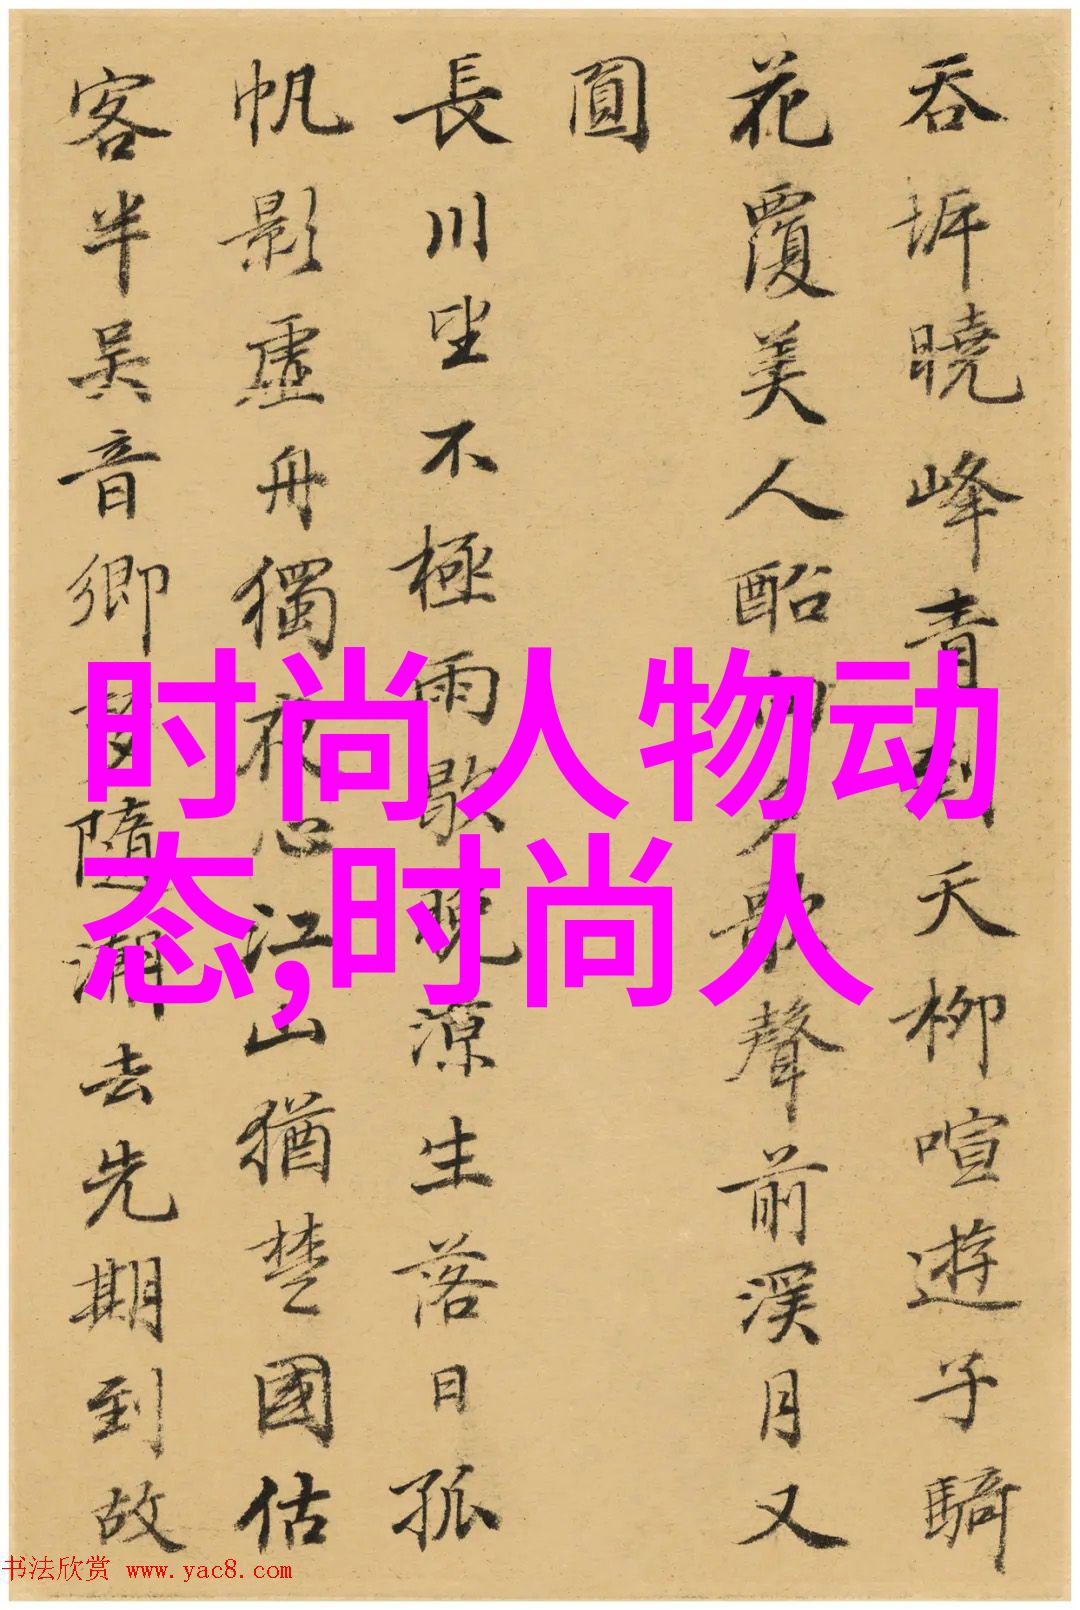 吞坼曉峰青天柳喧遊子騎
花覆美人酩歌聲前溪月又
圓
長川坐不極雨歇晚源生落日孤
帆影虛舟獨夜心江山猶楚國估
客半吳音鄉夢隨潮去先期到故
时尚人物动
态,时尚人
书法欣赏 www.yac8.com